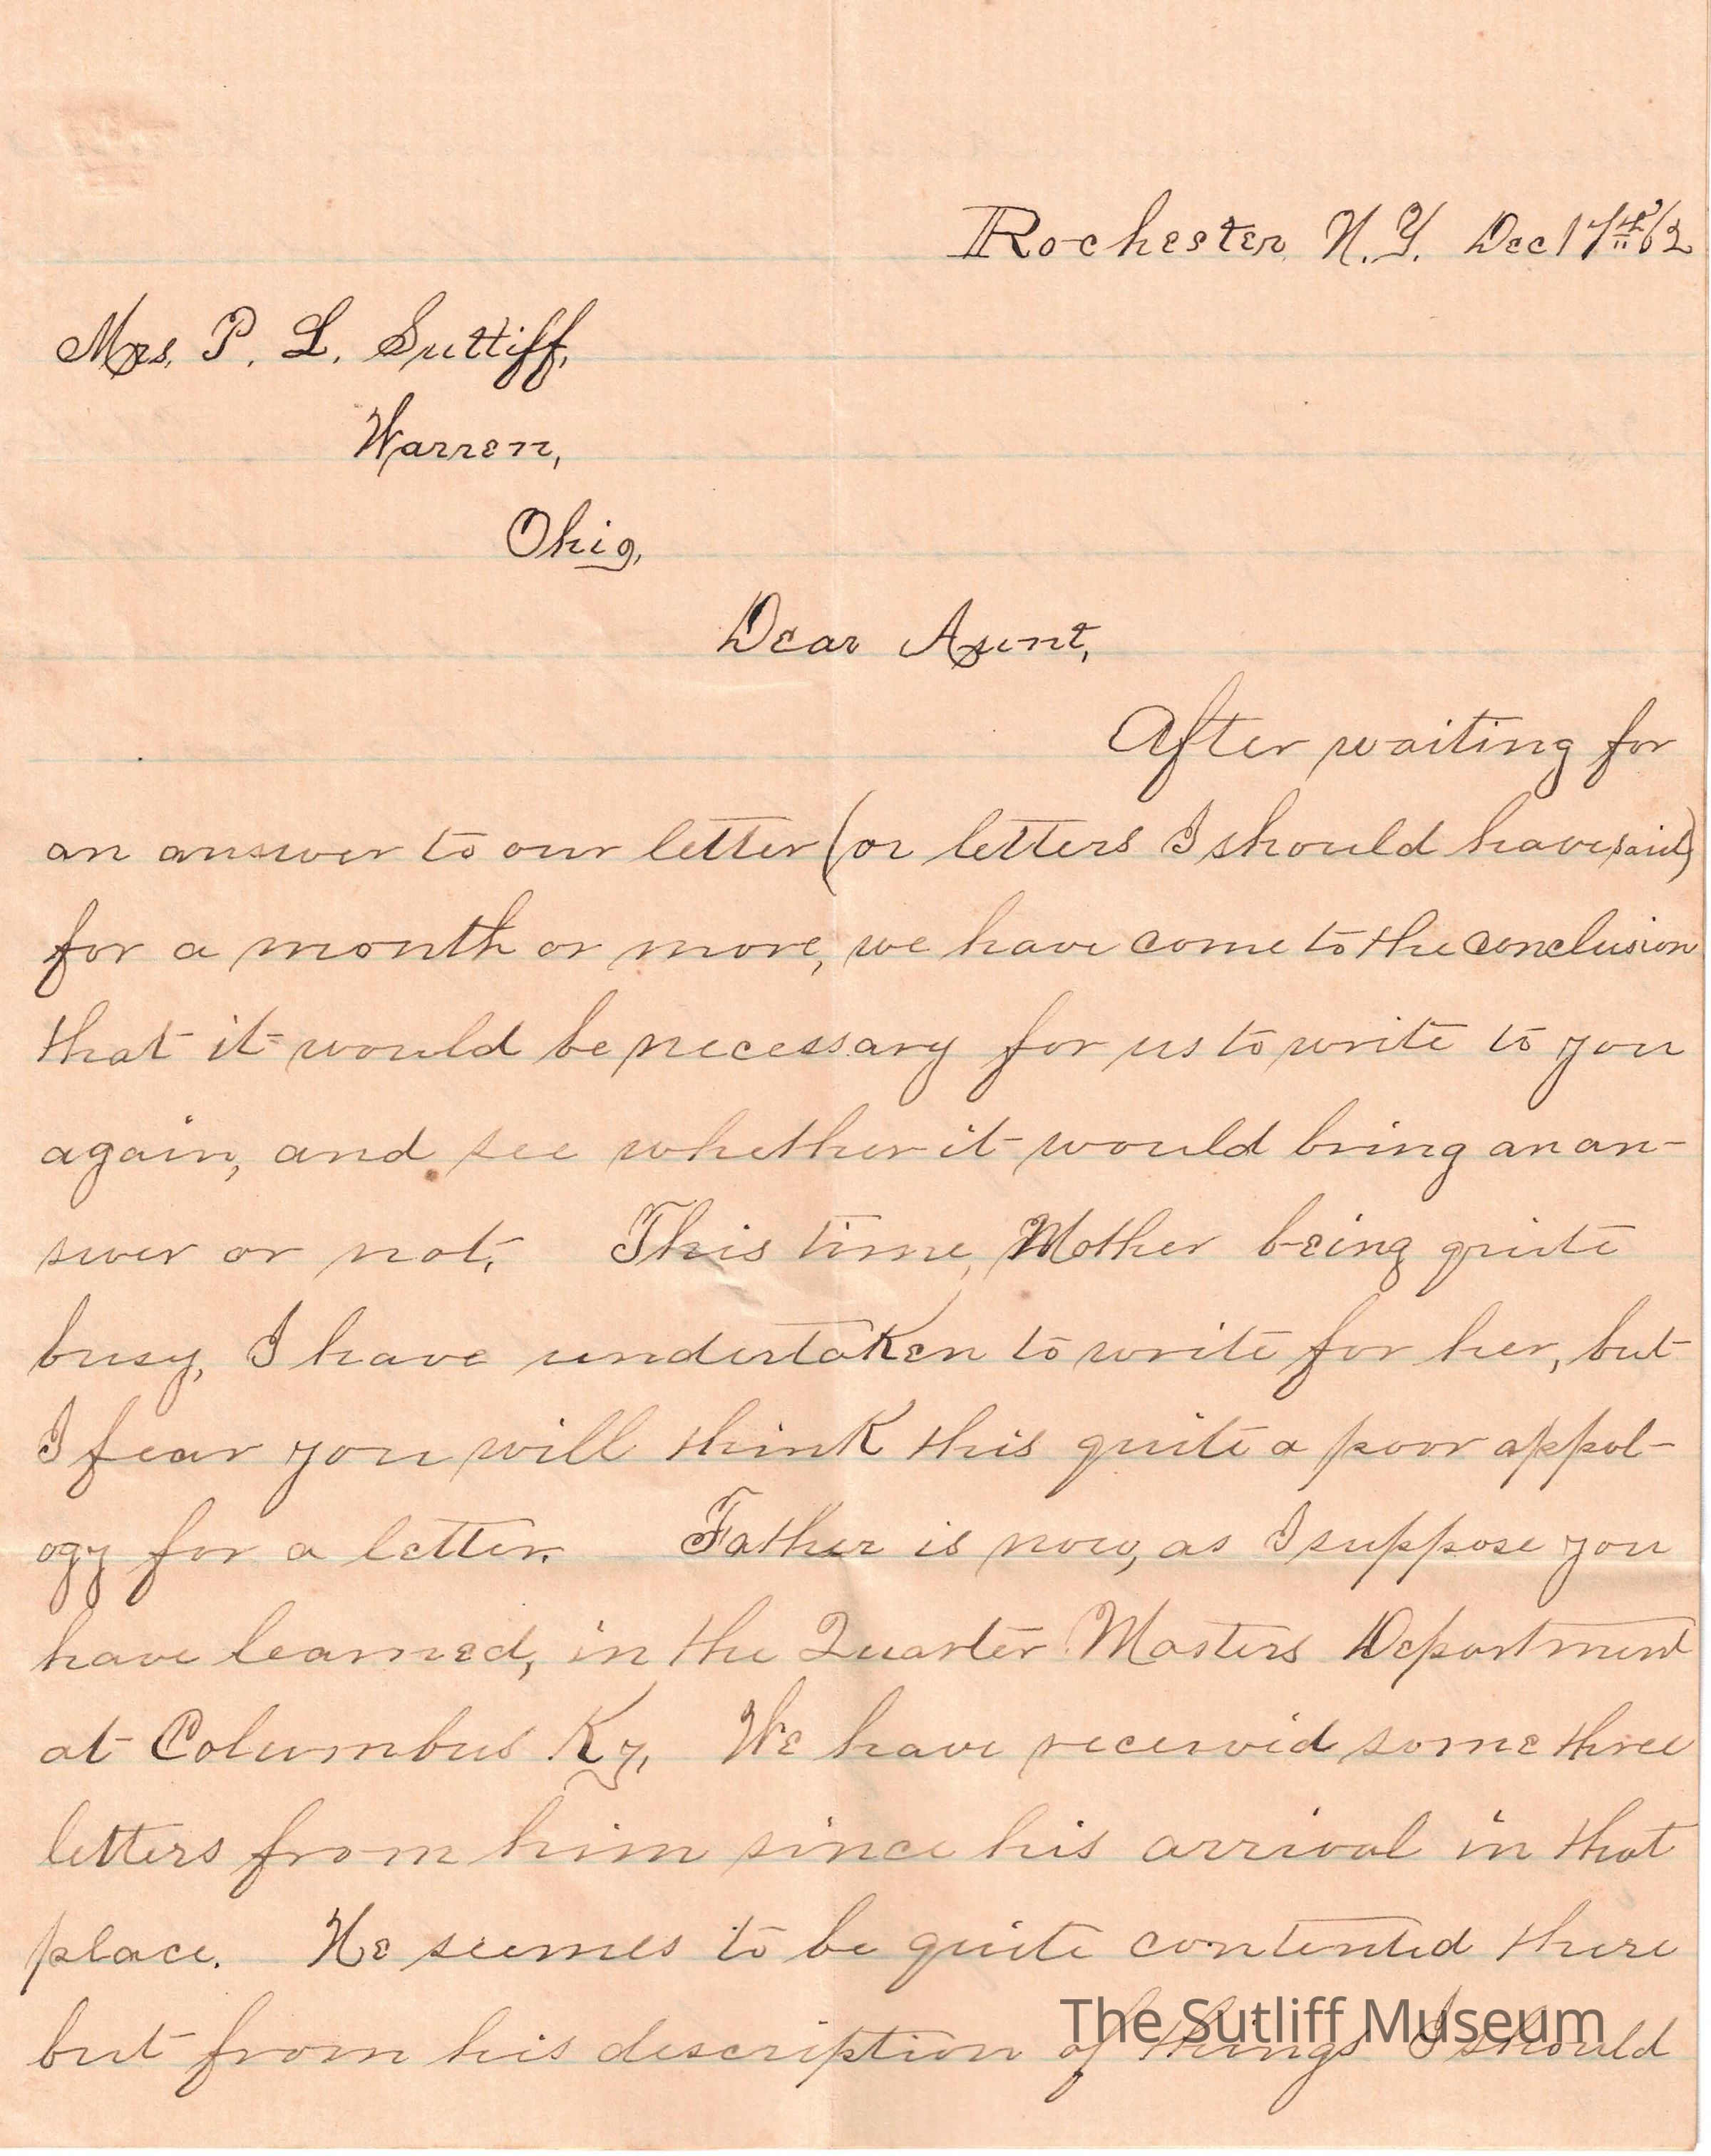 Rochester, N.Y. Dec 17th /62
Mrs. P. L. Suttiff,
Warren,
Ohio,
Dear Aunt,
After waiting for
an answer to our letter (or letters I should have said)
for a month or more, we have come to the conclusion
that it would be necessary for us to write to you
again, and see whether it would bring an an-
swer or not. This time, Mother being quite
busy, I have undertaken to write for her, but
I fear you will think this quite a poor appol-
ogy for a letter. Father is now, as I suppose you
have learned, in the Quarter Masters Department
at Columbus Ky, We have received some three
letters from him since his arrival in that
place. He seemes to be quite contented there
but from his description of things I should
The Sutliff Museum